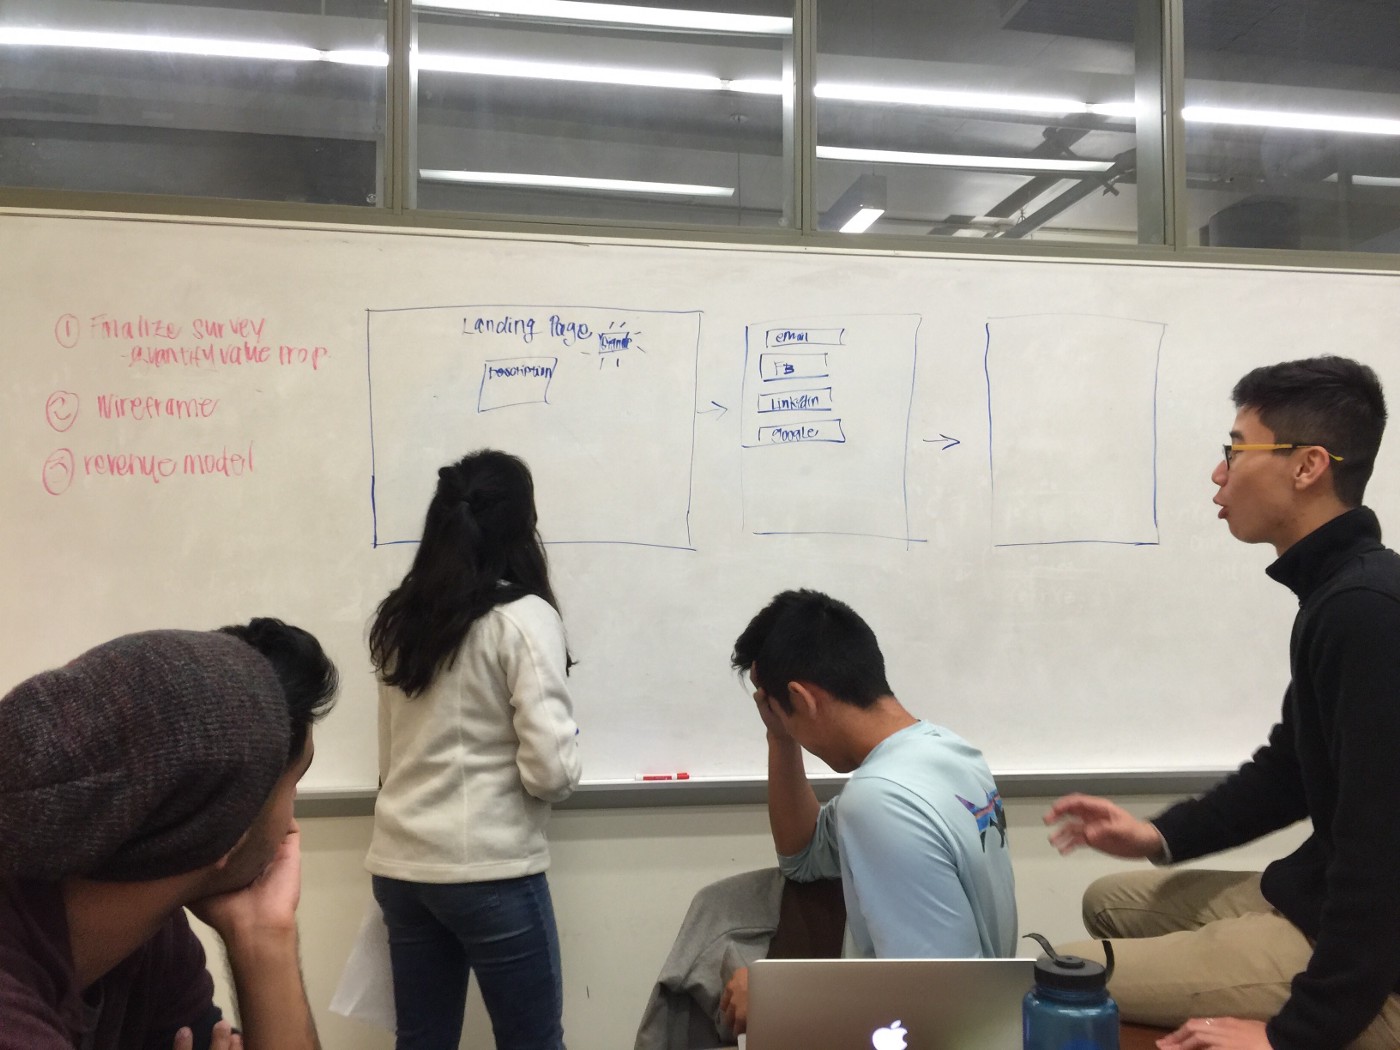 ① Finalize survey
- quantify value prop
② Wireframe
③ revenue model
Landing Page
Description
email
FB
LinkedIn
Google